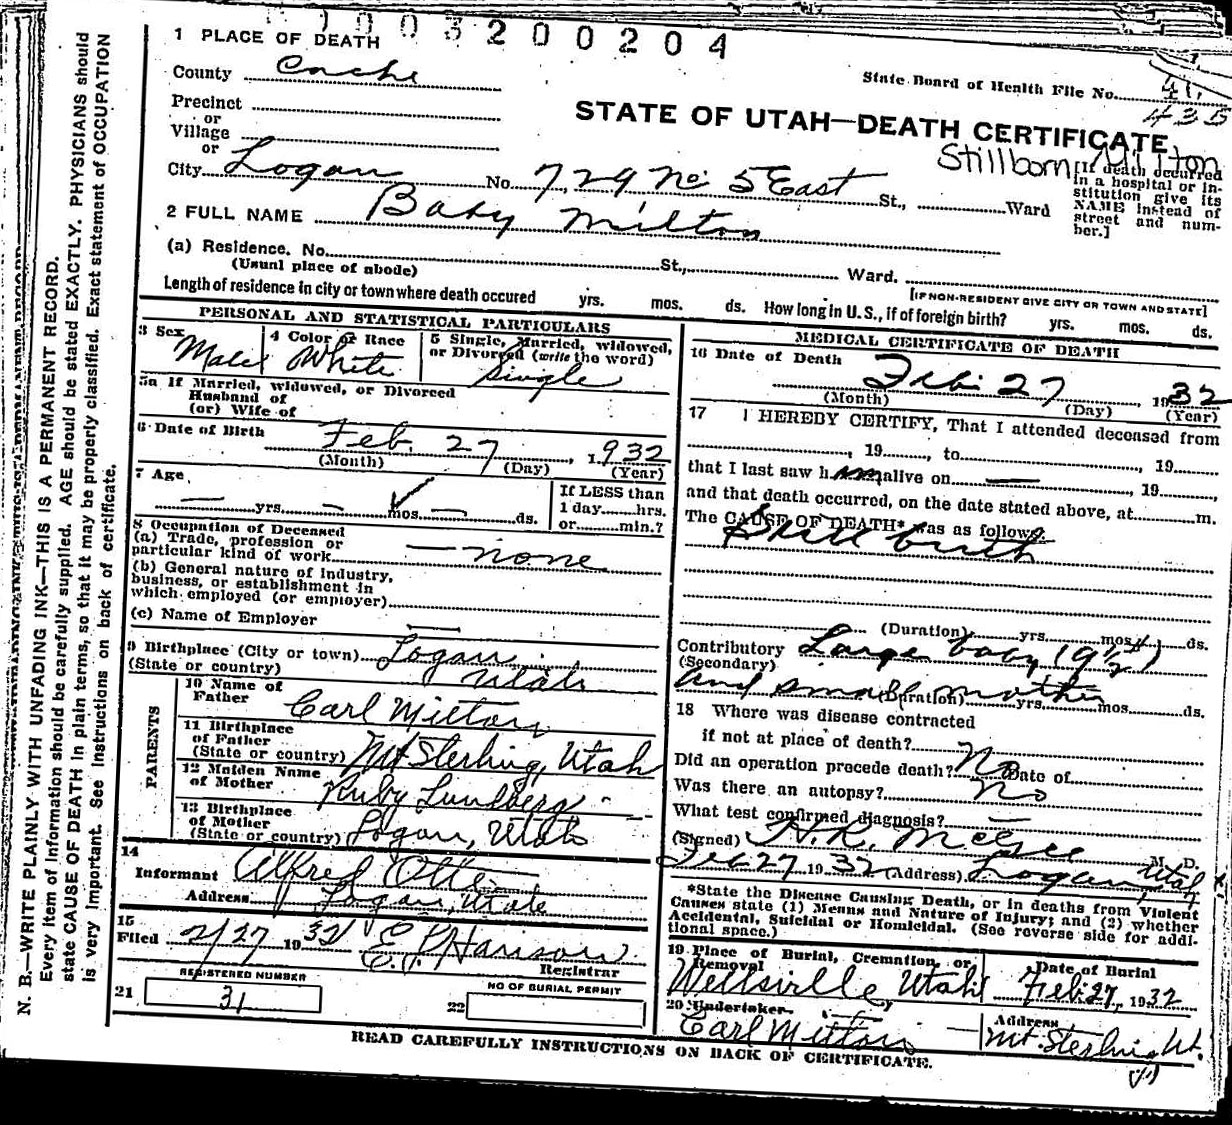 1003200204
1 PLACE OF DEATH
County Cache
State Board of Health File No.
435
Precinct
or
Village
or
STATE OF UTAH—DEATH CERTIFICATE
Stillborn Milton
City Logan No. 729 No. 5 East St., Ward
[If death occurred in a hospital or institution give its NAME instead of street and number.]
2 FULL NAME Baby Milton
(a) Residence. No. St., Ward.
(Usual place of abode)
[IF NON-RESIDENT GIVE CITY OR TOWN AND STATE]
Length of residence in city or town where death occured yrs. mos. ds. How long in U. S., if of foreign birth? yrs. mos. ds.
PERSONAL AND STATISTICAL PARTICULARS
3 Sex
Male
4 Color or Race
White
5 Single, Married, widowed,
or Divorced (write the word)
Single
5a If Married, widowed, or Divorced
Husband of
(or) Wife of
6 Date of Birth Feb. 27, 1932
(Month) (Day) (Year)
7 Age
— yrs. — mos. — ds.
If LESS than
1 day hrs.
or min.?
8 Occupation of Deceased
(a) Trade, profession or
particular kind of work — none
(b) General nature of industry,
business, or establishment in
which employed (or employer)
(c) Name of Employer —
9 Birthplace (City or town) Logan
(State or country) Utah
PARENTS
10 Name of
Father Carl Milton
11 Birthplace
of Father
(State or country) Mt Sterling, Utah
12 Maiden Name
of Mother Ruby Lundberg
13 Birthplace
of Mother
(State or country) Logan, Utah
14
Informant Alfred Otte
Address Logan, Utah
15
Filed 2/27 1932 E. P. Harison
Registrar
REGISTERED NUMBER
21 31
NO OF BURIAL PERMIT
22
MEDICAL CERTIFICATE OF DEATH
16 Date of Death Feb. 27 1932
(Month) (Day) (Year)
17 I HEREBY CERTIFY, That I attended deceased from
, 19 , to , 19
that I last saw h alive on — , 19
and that death occurred, on the date stated above, at m.
The CAUSE OF DEATH* was as follows:
Still birth
(Duration) yrs. mos. ds.
Contributory Large baby (9½#)
(Secondary)
and small mother (Duration) yrs. mos. ds.
18 Where was disease contracted
if not at place of death?
Did an operation precede death? No Date of
Was there an autopsy? No
What test confirmed diagnosis? —
(Signed) H. R. McGee M. D.
Feb 27 1932 (Address) Logan, Utah
*State the Disease Causing Death, or in deaths from Violent
Causes state (1) Means and Nature of Injury; and (2) whether
Accidental, Suicidal or Homicidal. (See reverse side for addi-
tional space.)
19 Place of Burial, Cremation, or
Removal
Wellsville, Utah
Date of Burial
Feb 27, 1932
20 Undertaker
Carl Milton
Address
Mt. Sterling Ut.
READ CAREFULLY INSTRUCTIONS ON BACK OF CERTIFICATE.
N. B.—WRITE PLAINLY WITH UNFADING INK—THIS IS A PERMANENT RECORD.
Every item of information should be carefully supplied. AGE should be stated EXACTLY. PHYSICIANS should
state CAUSE OF DEATH in plain terms, so that it may be properly classified. Exact statement of OCCUPATION
is very important. See instructions on back of certificate.